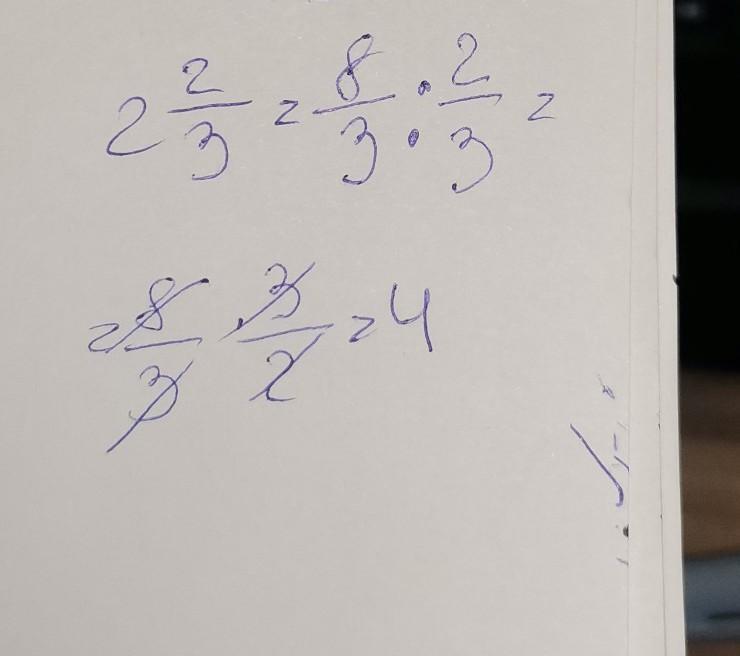 2 2/3 = 8/3 : 2/3 =
= 8/3 · 3/2 = 4